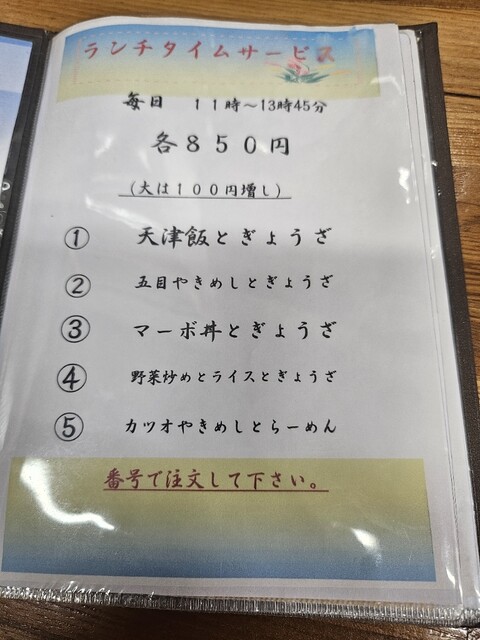 ランチタイムサービス
毎日 11時～13時45分
各850円
(大は100円増し)
① 天津飯とぎょうざ
② 五目やきめしとぎょうざ
③ マーボ丼とぎょうざ
④ 野菜炒めとライスとぎょうざ
⑤ カツオやきめしとらーめん
番号で注文して下さい。